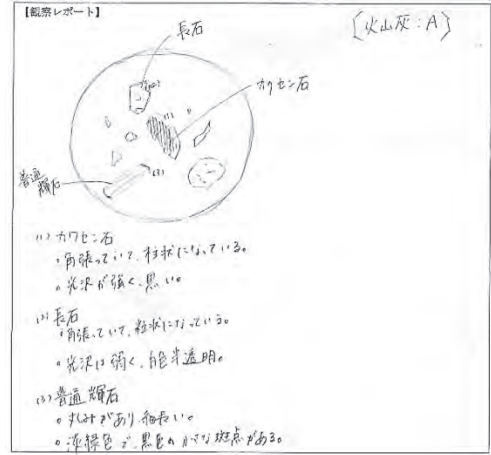 【観察レポート】
〔火山灰：A〕
長石
カクセン石
普通
輝石
(2)
(1)
(3)
(1) カクセン石
・角張っていて、柱状になっている。
・光沢が強く、黒い。
(2) 長石
・角張っていて、柱状になっている。
・光沢は弱く、白色半透明。
(3) 普通輝石
・丸みがあり、細長い。
・淡緑色で、黒色の小さな斑点がある。